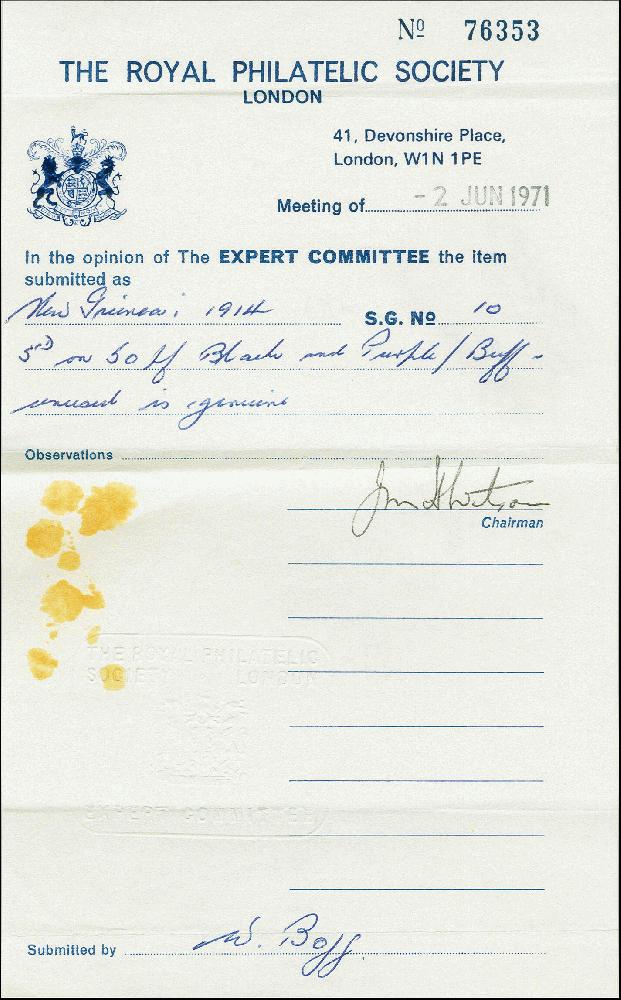 Nº 76353
THE ROYAL PHILATELIC SOCIETY
LONDON
41, Devonshire Place,
London, W1N 1PE
Meeting of - 2 JUN 1971
In the opinion of The EXPERT COMMITTEE the item
submitted as
New Guinea: 1914 S.G. Nº 10
5D on 50 pf Black and Purple/Buff -
unused is genuine
Observations
Chairman
THE ROYAL PHILATELIC
SOCIETY LONDON
EXPERT COMMITTEE
Submitted by W. Boff.